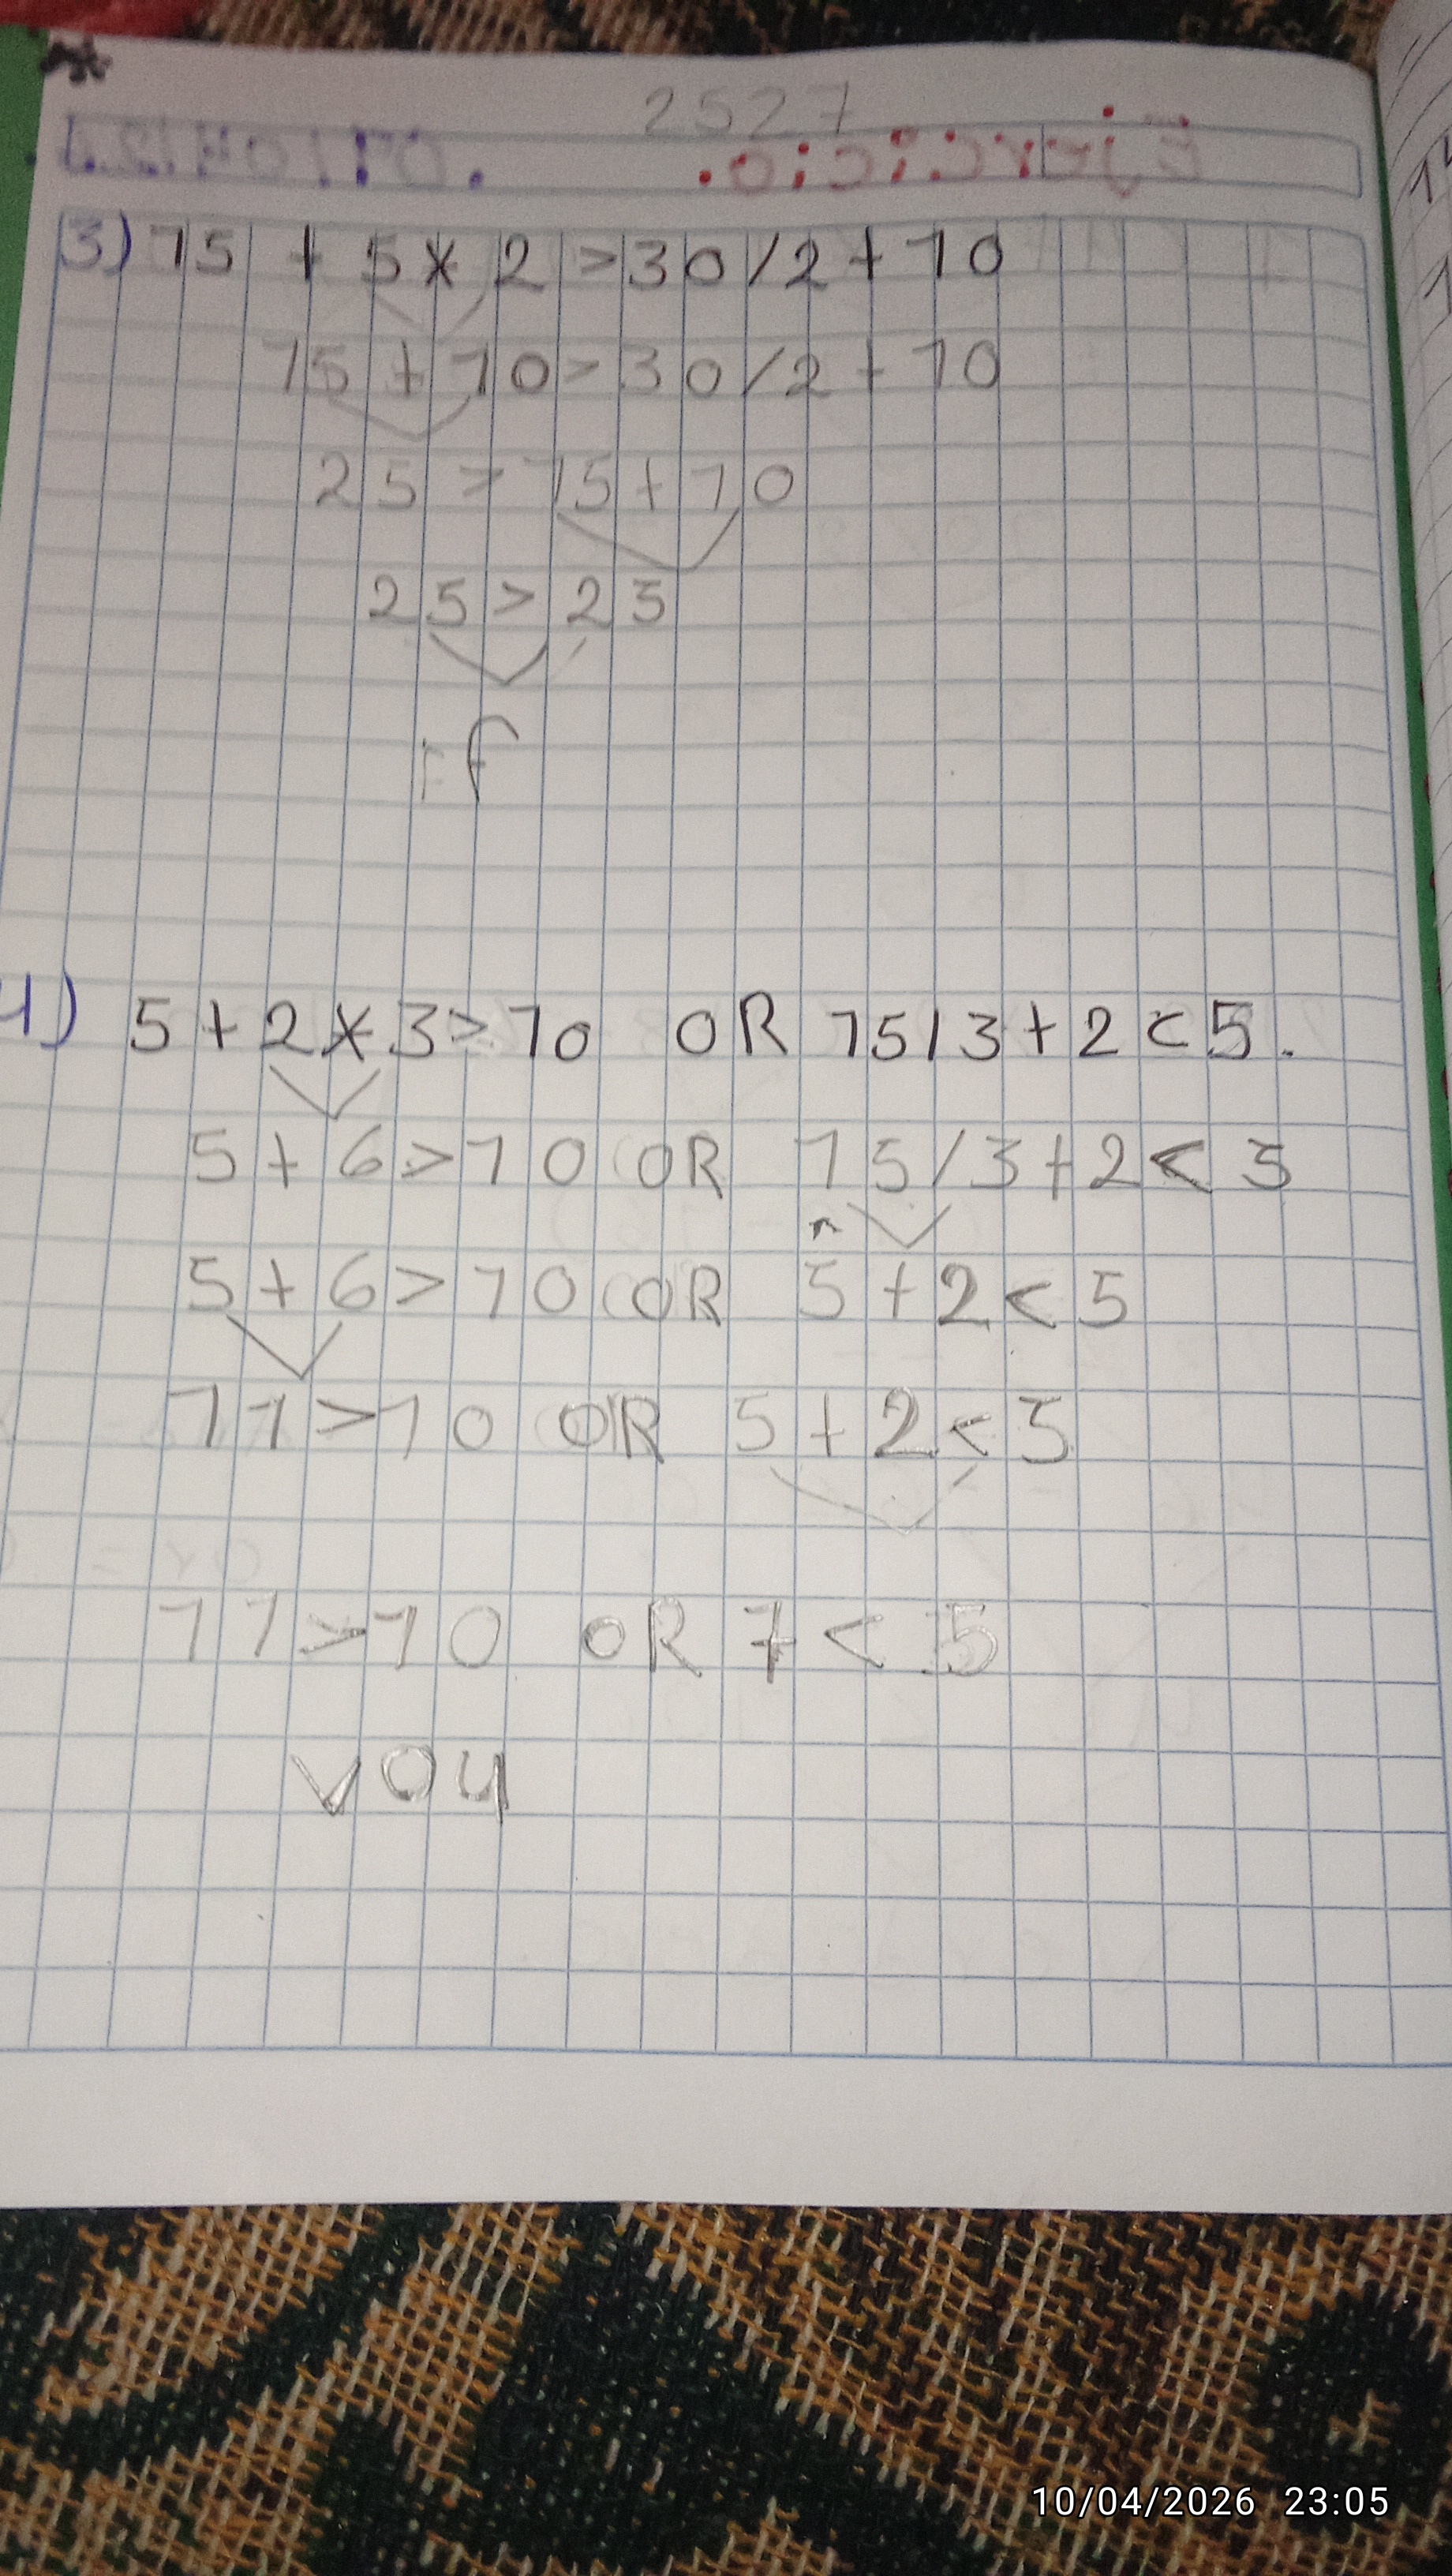 2527
3) 15 + 5 * 2 > 30 / 2 + 10
15 + 10 > 30 / 2 + 10
25 > 15 + 10
25 > 25
f
4) 5 + 2 * 3 > 10 OR 15 / 3 + 2 < 5.
5 + 6 > 10 OR 15 / 3 + 2 < 5
5 + 6 > 10 OR 5 + 2 < 5
11 > 10 OR 5 + 2 < 5
11 > 10 OR 7 < 5
10/04/2026 23:05